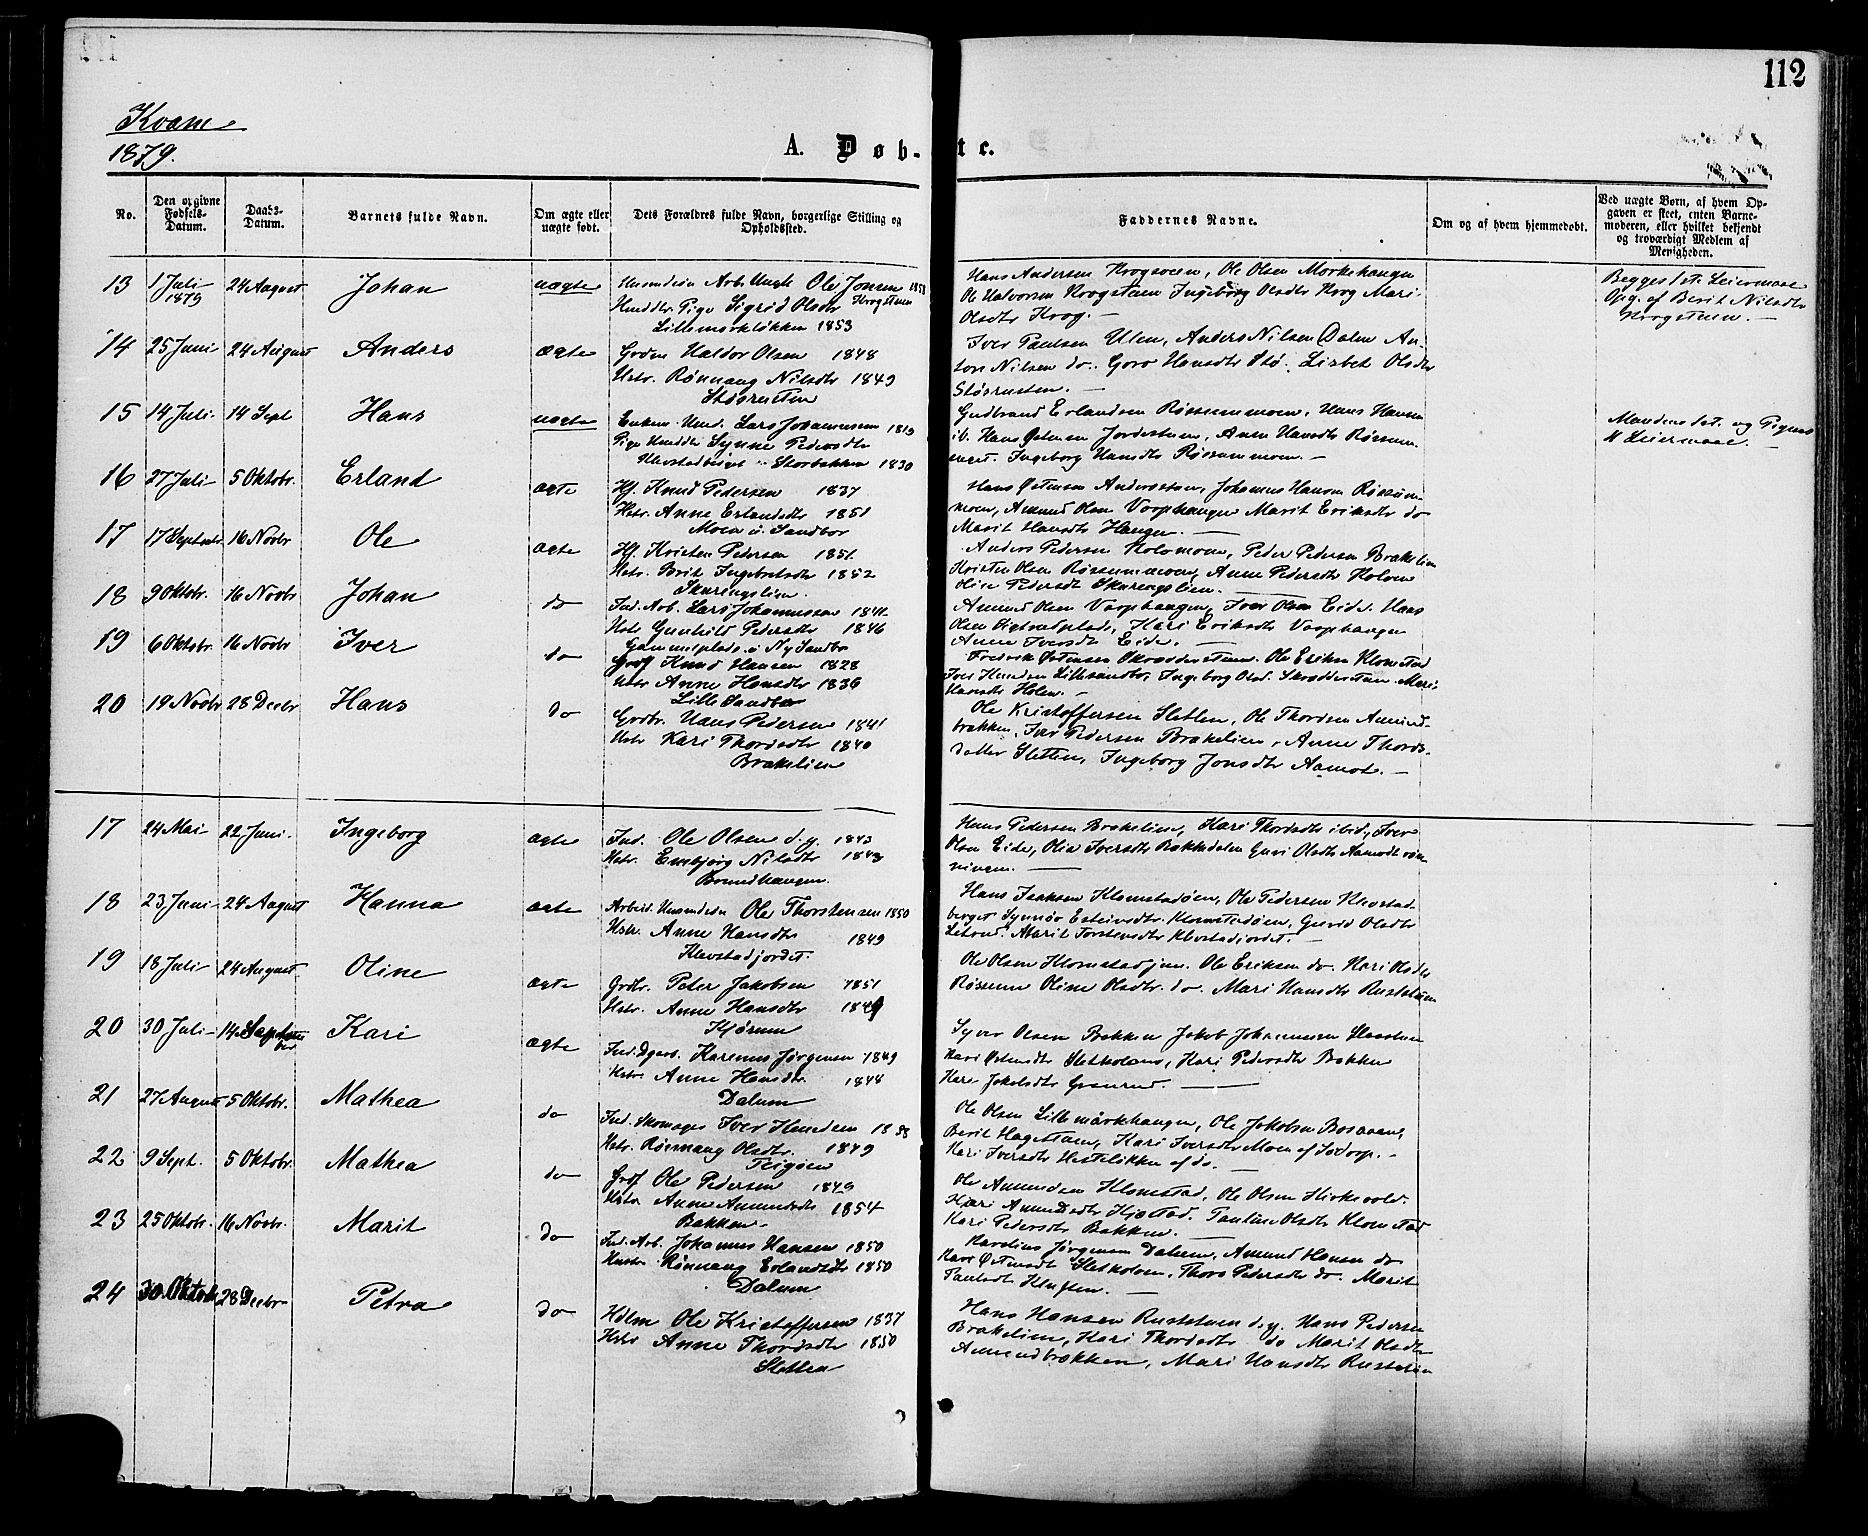 112
Kvam
1879.
A. Døb-te.
No.
Den opgivne Fødsels-Datum.
Daabs-Datum.
Barnets fulde Navn.
Om ægte eller uægte født.
Dets Forældres fulde Navn, borgerlige Stilling og Opholdssted.
Faddernes Navne.
Om og af hvem hjemmedøbt.
Ved uægte Børn, af hvem Opgaven er skeet, enten Barnemoderen, eller hvilket bekjendt og troværdigt Medlem af Menigheden.
13 1 Juli 1879 24 August Johan uægte
Ole Jonsen 1858
Pige Sigrid Olsdtr Krogstuen
Lillemorkløkken 1853
Hans Andersen Krogsveen, Ole Olsen Morkehaugen
Ole Halvorsen Krogstuen Ingeborg Olsdtr Krog Mari
Olsdtr Krog. —
Begges 1st. Leiermaal
Opg. af Berit Nilsdtr
Krogstuen. —
14 25 Juni 24 August Anders ægte
Haldor Olsen 1848
Hstr. Rønnaug Nilsdtr 1849
Støsrusten
Iver Paulsen Ulen, Anders Nilsen Dalen An-
ton Nilsen do. Goro Hansdtr Stø. Lisbet Olsdtr
Støsrusten. —
15 14 Juli 14 Sept Hans uægte
Enkem. Lars Johannessen 1819
Pige Synne Pedersdtr
Storbakken 1830
Gudbrand Erlandsen Røssummoen, Hans Hansen
ib. Hans Østensen Jordestuen, Anne Hansdtr Røssum-
Ingeborg Hansdtr Røssummoen. —
Mandens 1st. og Pigens
Leiermaal.
16 27 Juli 5 Oktobr. Erland ægte
Hf. Knud Pedersen 1837
Hstr. Anne Erlandsdtr 1851
Moen u. Sandbor
Hans Østensen Andersstuen, Johannes Hansen Røssum-
moen, Amund Olsen Vorphaugen Marit Eriksdtr do
Marit Hansdtr Haugen. —
17 17 Septbr 16 Novbr Ole ægte
Hf. Kristen Pedersen 1851.
Hstr. Brit Ingebretsdtr 1852
Skuringslien.
Anders Pedersen Kolomoen, Peder Pedersen Brakelien
Kristen Olsen Røssummoen, Anne Pedersdtr Koloen
Oline Pedersdt Skuringslien. —
18 9 Oktobr. 16 Novbr Johan do
Ind. Arb. Lars Johannessen 1841
Hstr Gunhild Pedersdtr 1846
Gammelplads. u Ny Sandbo
Amund Olsen Vorphaugen, Iver Olsen Eide. Hans
Olsen Kari Eriksdtr Vorphaugen
Anne Iversdt Eide. —
19 6 Oktobr. 16 Novbr Iver do
Knud Hansen 1828
Hstr Anne Hansdtr 1836
Lille Sandbo
Fredrik Østensen Skrædderstuen. Ole Eriksen Klomstad
Iver Lillesandbo, Ingeborg Olsd. Skrædderstuen Mari
Hansdtr Holen. —
20 19 Novbr 28 Decbr Hans do
Grdbr. Hans Pedersen 1841
Hstr Kari Thordsdtr 1840
Brakelien
Ole Kristoffersen Sletten, Ole Thordsen Amund-
bakken, Iver Pedersen Brakelien, Anne Thords-
datter Sletten, Ingeborg Jonsdtr Aamot. —
17 24 Mai 22 Juni. Ingeborg ægte
Ind. Ole Olsen d.y. 1843
Hstr. Embjørg Nilsdtr 1843
Brundhaugen.
Hans Pedersen Brakelien, Kari Thordsdtr ibid., Iver
Olsen Eide, Olia Iversdtr Bækkedalen Guri Olsdtr Aamodt røn-
ningen. —
18 23 Juni 24 August Hanna ægte
Arbeid. Ole Thorstensen 1850
Hstr. Anne Hansdtr 1849
Klevstadjordet.
Hans Isaksen Klomstadøen, Ole Pedersen Klevstad
berget Synnøv Klomstadøen, Olsdtr
Marit Torstensdtr Klevstadjordet. —
19 18 Juli 24 August Oline ægte
Grdbr. Peter Jakobsen 1851
Hstr. Anne Hansdtr 1849
Kjørum
Ole Olsen Klomstad jun. Ole Eriksen do. Kari Olsdtr
Røssum Oline Olsdtr. do. Mari Hansdtr Ruststuen
20 30 Juli 14 September Kari ægte
Karenus Jørgensen 1849
Hstr. Anne Hansdtr. 1844
Dalum
Syver Olsen Bakken Jakob Johannessen
Kari Østensdtr Sletkolens, Kari Pedersdtr Bakken
Kari Jakobsdtr Granrud. —
21 27 August 5 Oktobr. Mathea do
Ind. Skomager Iver 1838
Hstr. Rønnaug Olsdtr. 1849
Teigøen
Ole Olsen Lillemårkhaugen, Ole Jakobsen
Berit Hagestuen, Kari Iversdtr Moen af Sødorp. -
Kari Iversdtr Hesteløkken af do. —
22 9 Sept. 5 Oktobr. Mathea do
Ole Pedersen 1849
Hstr Anne Amundsdtr 1854
Bakken
Ole Amundsen Klomstad, Ole Olsen Kirkevold.
Kari Amundsdtr Pauline Olsdtr Klomstad
Kari Pedersdtr Bakken. —
23 25 Oktobr. 16 Novbr. Marit do
Ind. Arb. Johannes Hansen 1850
Hustr. Rønnaug Erlandsdtr 1850
Dalum
Karelius Jørgensen Dalum, Amund Hansen do
Kari Østensdt Sletkolen, Thora Pedersdtr do. Marit
Paulsdt Kluften. —
24 30 Oktobr 28 Decbr Petra do
Ole Kristoffersen 1837
Hstr Anne Thordsdtr 1850
Sletten
Hans Hansen Ruststuen d.y. Hans Pedersen
Brakelien, Kari Thordsdtr do Marit Olsdtr
Amundbakken, Mari Hansdtr Ruststuen